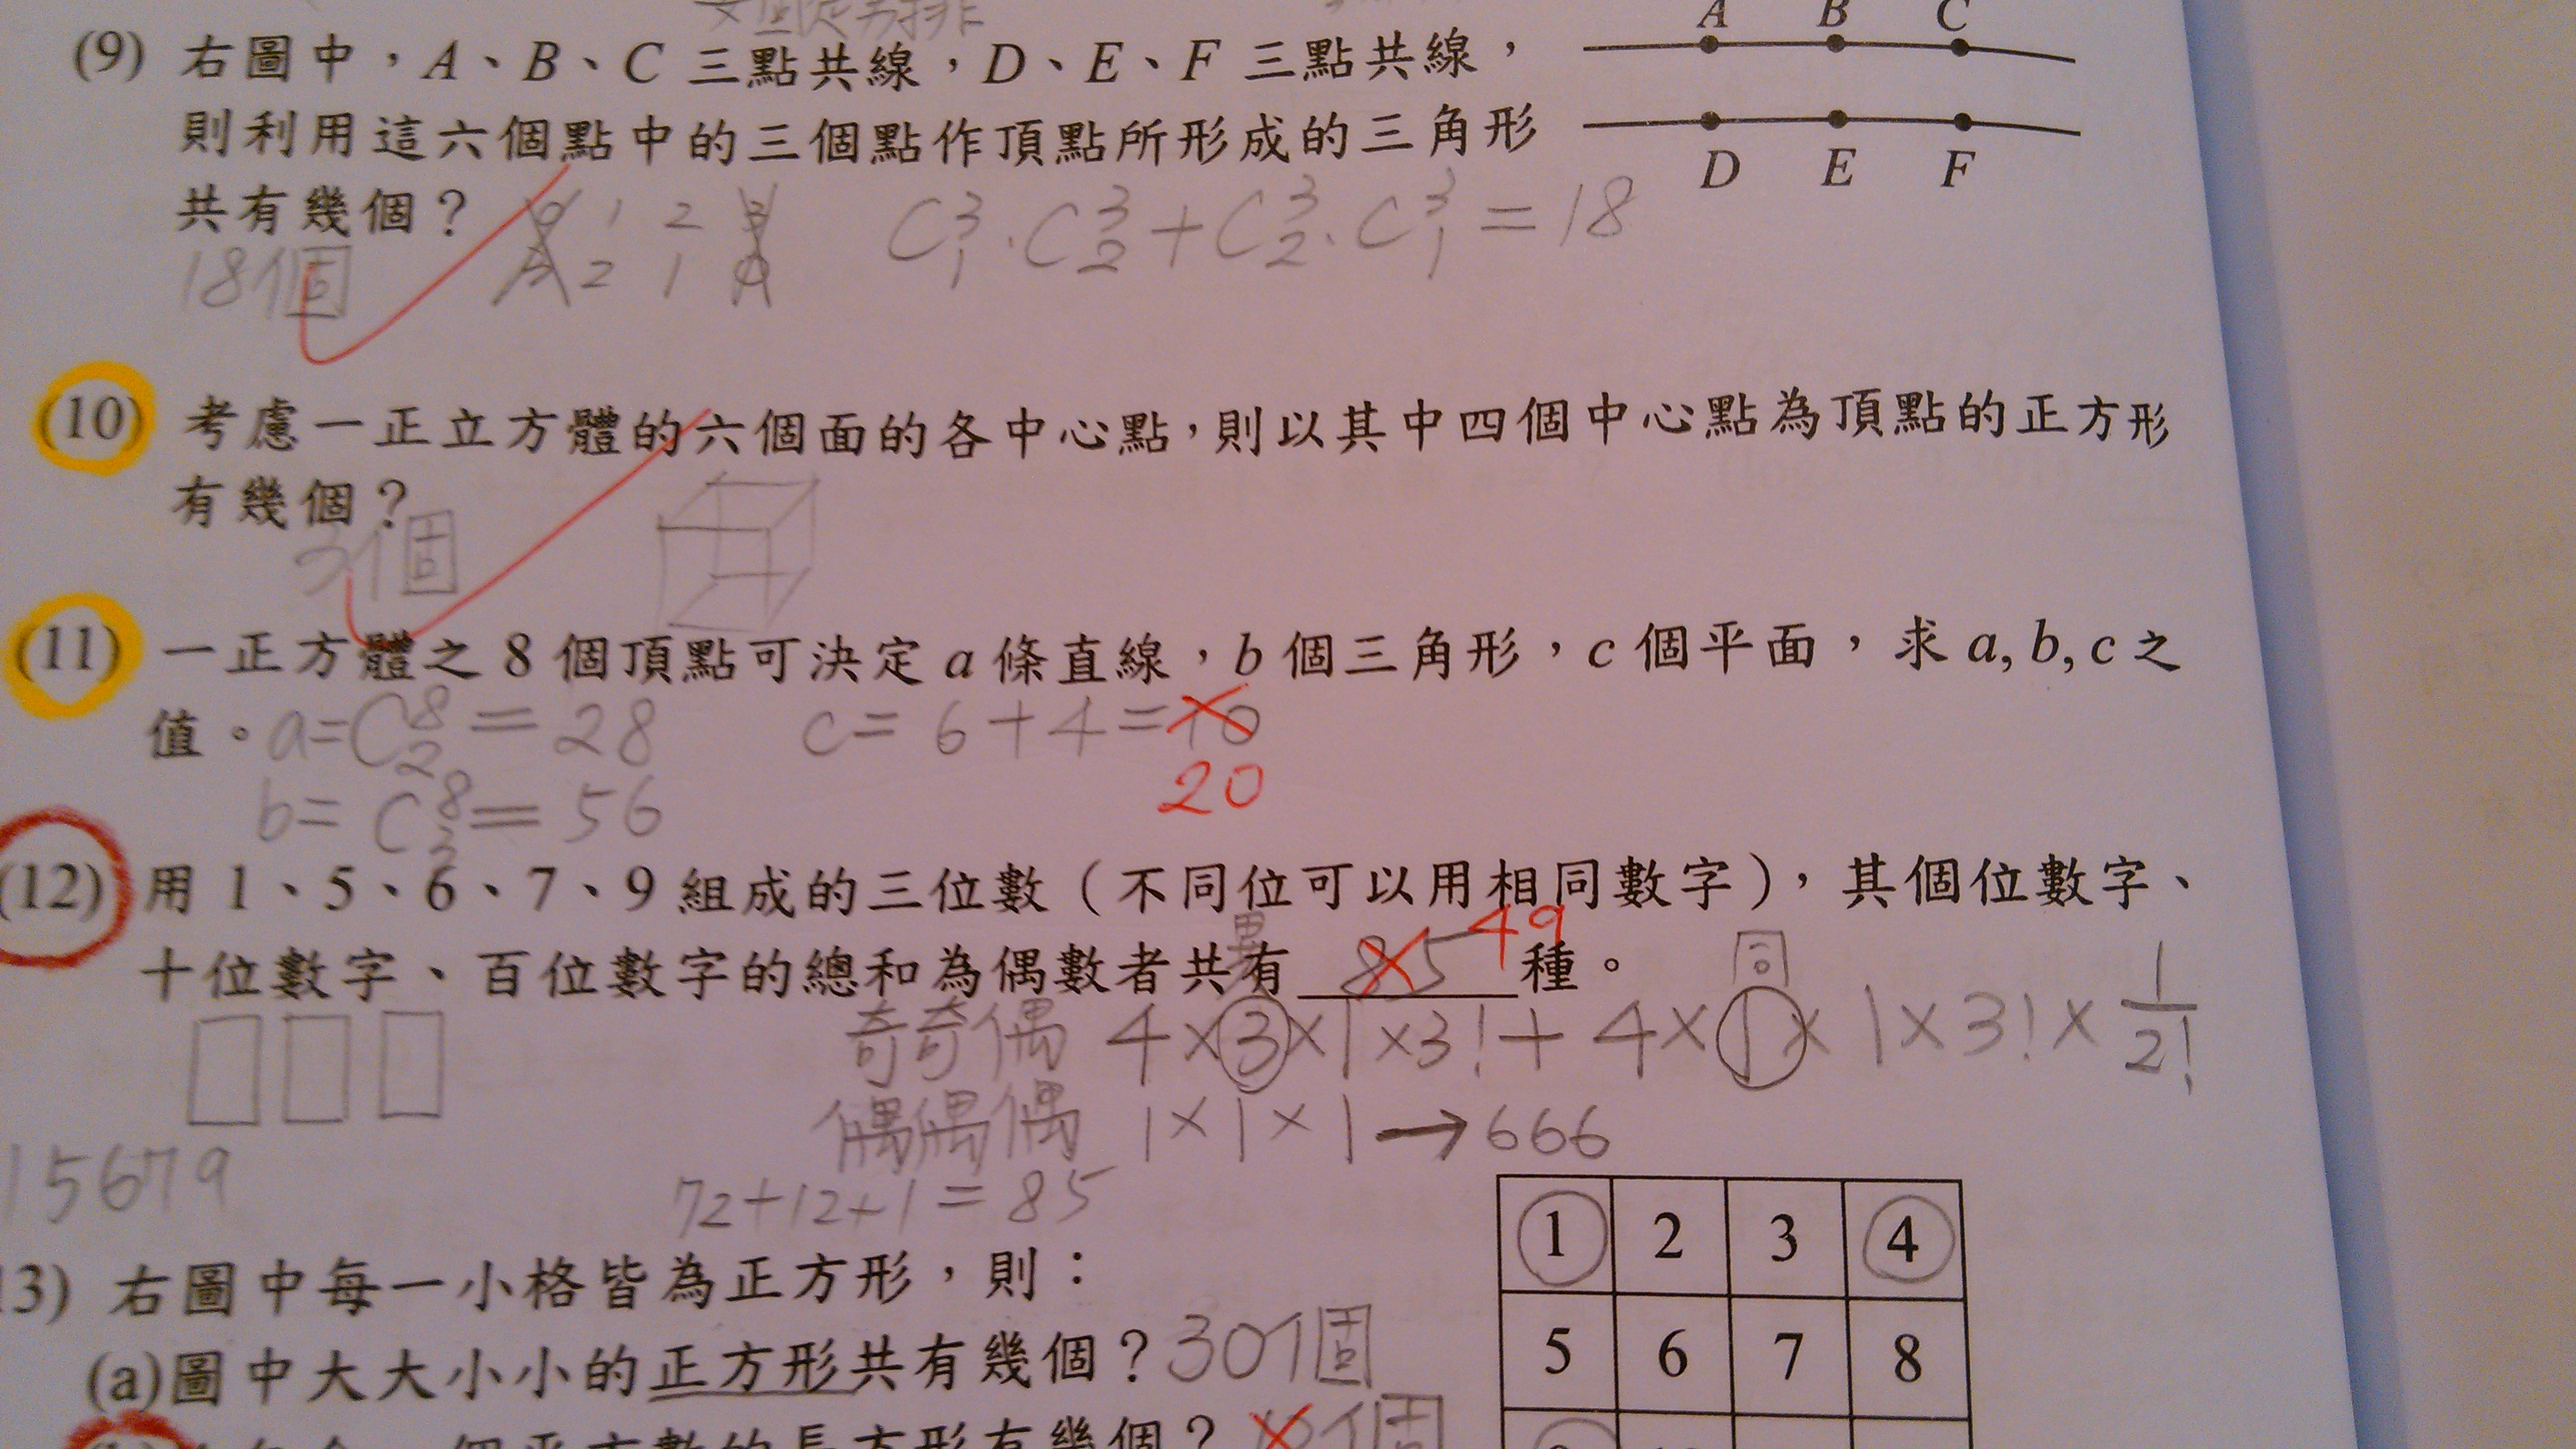 A B C
(9) 右圖中，A、B、C 三點共線，D、E、F 三點共線，
則利用這六個點中的三個點作頂點所形成的三角形
D E F
共有幾個？ 0 1 2 3 C³₁·C³₂+C³₂·C³₁=18
18個 3 2 1 0
(10) 考慮一正立方體的六個面的各中心點，則以其中四個中心點為頂點的正方形
有幾個？
3個
(11) 一正方體之 8 個頂點可決定 a 條直線，b 個三角形，c 個平面，求 a, b, c 之
值。a=C⁸₂=28 c=6+4=10
20
b=C⁸₃=56
(12) 用 1、5、6、7、9 組成的三位數（不同位可以用相同數字），其個位數字、
十位數字、百位數字的總和為偶數者共有 85 49 種。
異 同
奇奇偶 4×3×1×3!+4×1×1×3!×1/2!
偶偶偶 1×1×1→666
15679
72+12+1=85
13) 右圖中每一小格皆為正方形，則：
(a)圖中大大小小的正方形共有幾個？30個
1 2 3 4
5 6 7 8